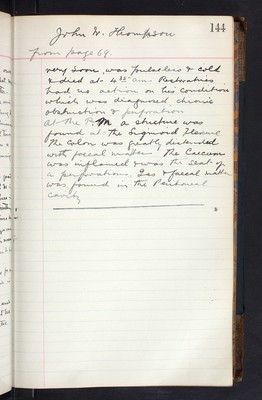 144
John W. Thompson
from page 69.
very soon was pulseless & cold
& died at 4.15 am. Restoratives
had no action on his condition
which was diagnosed, chronic
obstruction & perforation
At the P.M a stricture was
found at the Sigmoid Flexure
The Colon was greatly distended
with faecal matter. The Caecum
was inflamed & was the seat of
a perforation. Gas & faecal matter
was found in the Peritoneal
Cavity